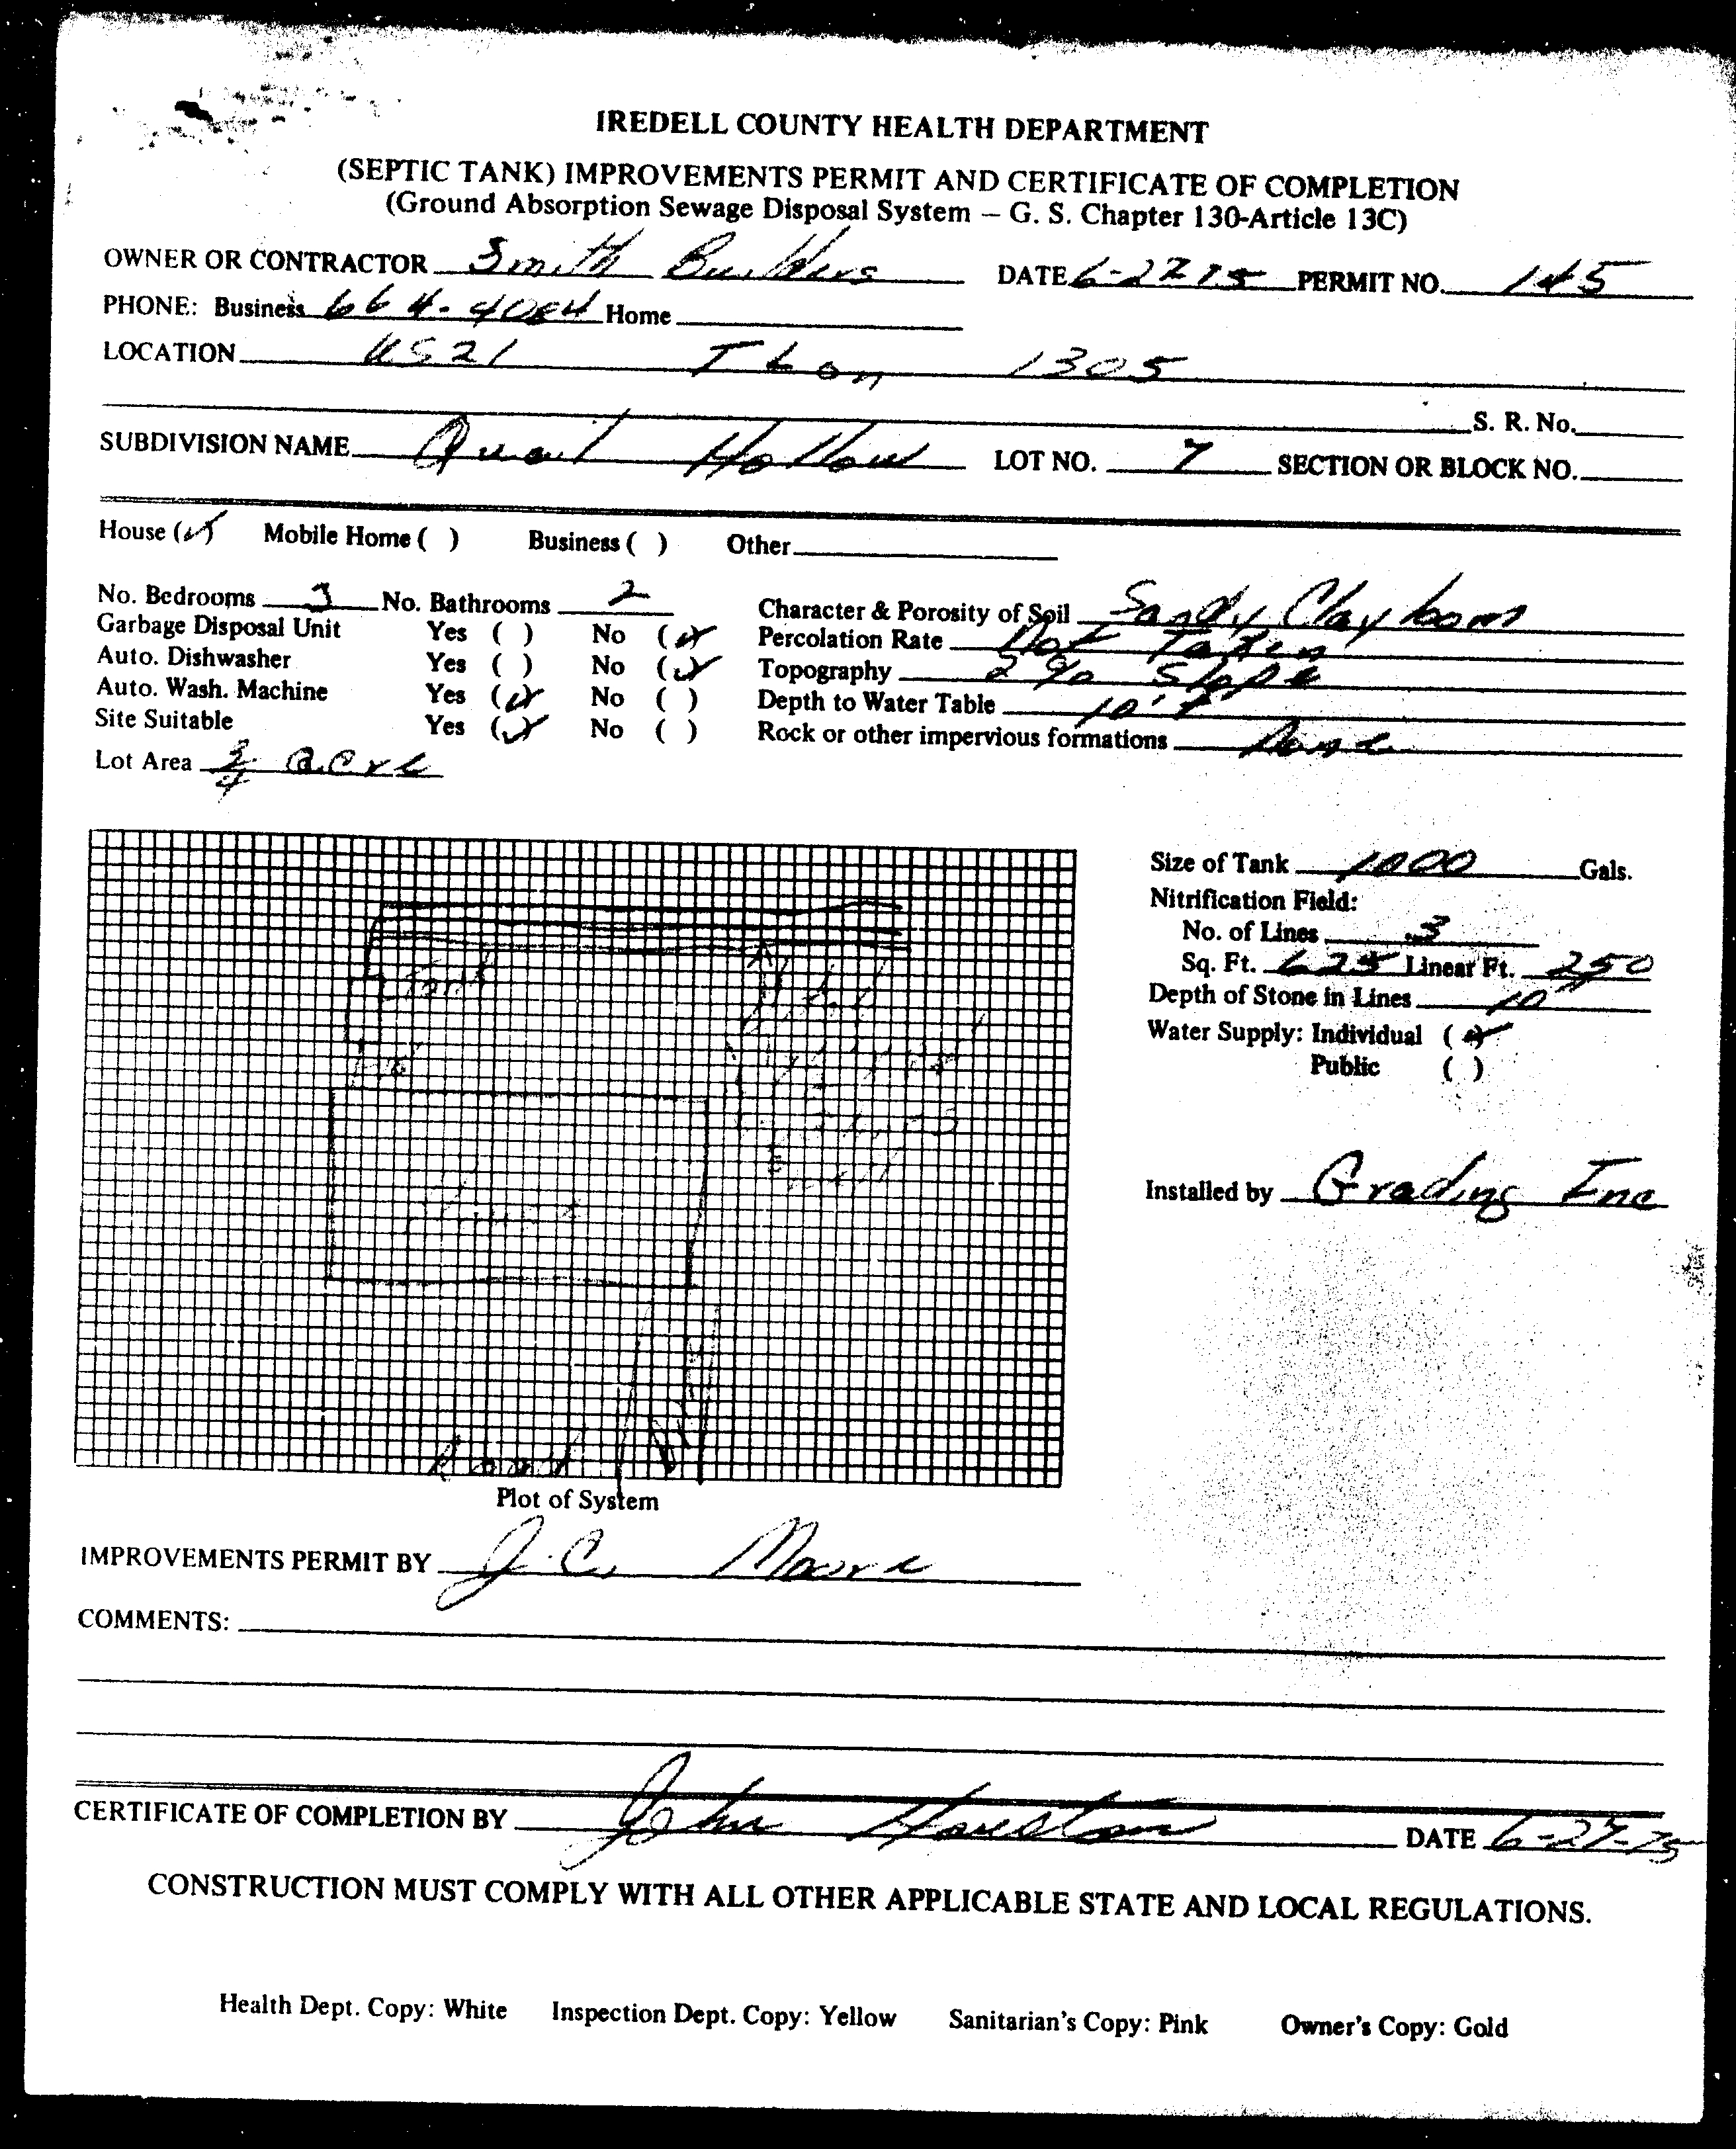 IREDELL COUNTY HEALTH DEPARTMENT
(SEPTIC TANK) IMPROVEMENTS PERMIT AND CERTIFICATE OF COMPLETION
(Ground Absorption Sewage Disposal System – G. S. Chapter 130-Article 13C)
OWNER OR CONTRACTOR Smith Builders DATE 6-27 75 PERMIT NO. 145
PHONE: Business 664-4084 Home
LOCATION US21 T L on 1305
S. R. No.
SUBDIVISION NAME Quail Hollow LOT NO. 7 SECTION OR BLOCK NO.
House (✓) Mobile Home ( ) Business ( ) Other
No. Bedrooms 3 No. Bathrooms 2 Character & Porosity of Soil Sandy Clay loam
Garbage Disposal Unit Yes ( ) No (✓) Percolation Rate Not Taken
Auto. Dishwasher Yes ( ) No (✓) Topography 2% Slope
Auto. Wash. Machine Yes (✓) No ( ) Depth to Water Table 10'+
Site Suitable Yes (✓) No ( ) Rock or other impervious formations None
Lot Area 3/4 acre
Size of Tank 1000 Gals.
Nitrification Field:
No. of Lines 3
Sq. Ft. 625 Linear Ft. 250
Depth of Stone in Lines 10"
Water Supply: Individual (✓)
Public ( )
Installed by Grading Inc
Tank
Road
Plot of System
IMPROVEMENTS PERMIT BY J.C. Moore
COMMENTS:
CERTIFICATE OF COMPLETION BY John Houston DATE 6-27-75
CONSTRUCTION MUST COMPLY WITH ALL OTHER APPLICABLE STATE AND LOCAL REGULATIONS.
Health Dept. Copy: White Inspection Dept. Copy: Yellow Sanitarian's Copy: Pink Owner's Copy: Gold